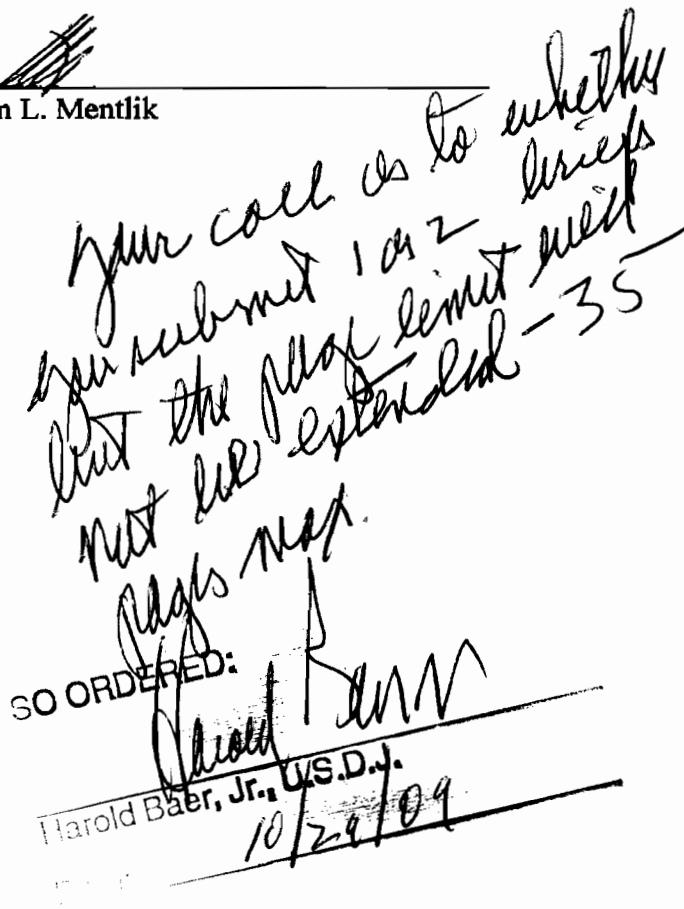 n L. Mentlik
your call as to whether
you submit 1 or 2 briefs
but the page limit will
not be extended - 35
pages max.
SO ORDERED:
Harold Baer
Harold Baer, Jr., U.S.D.J.
10/29/09